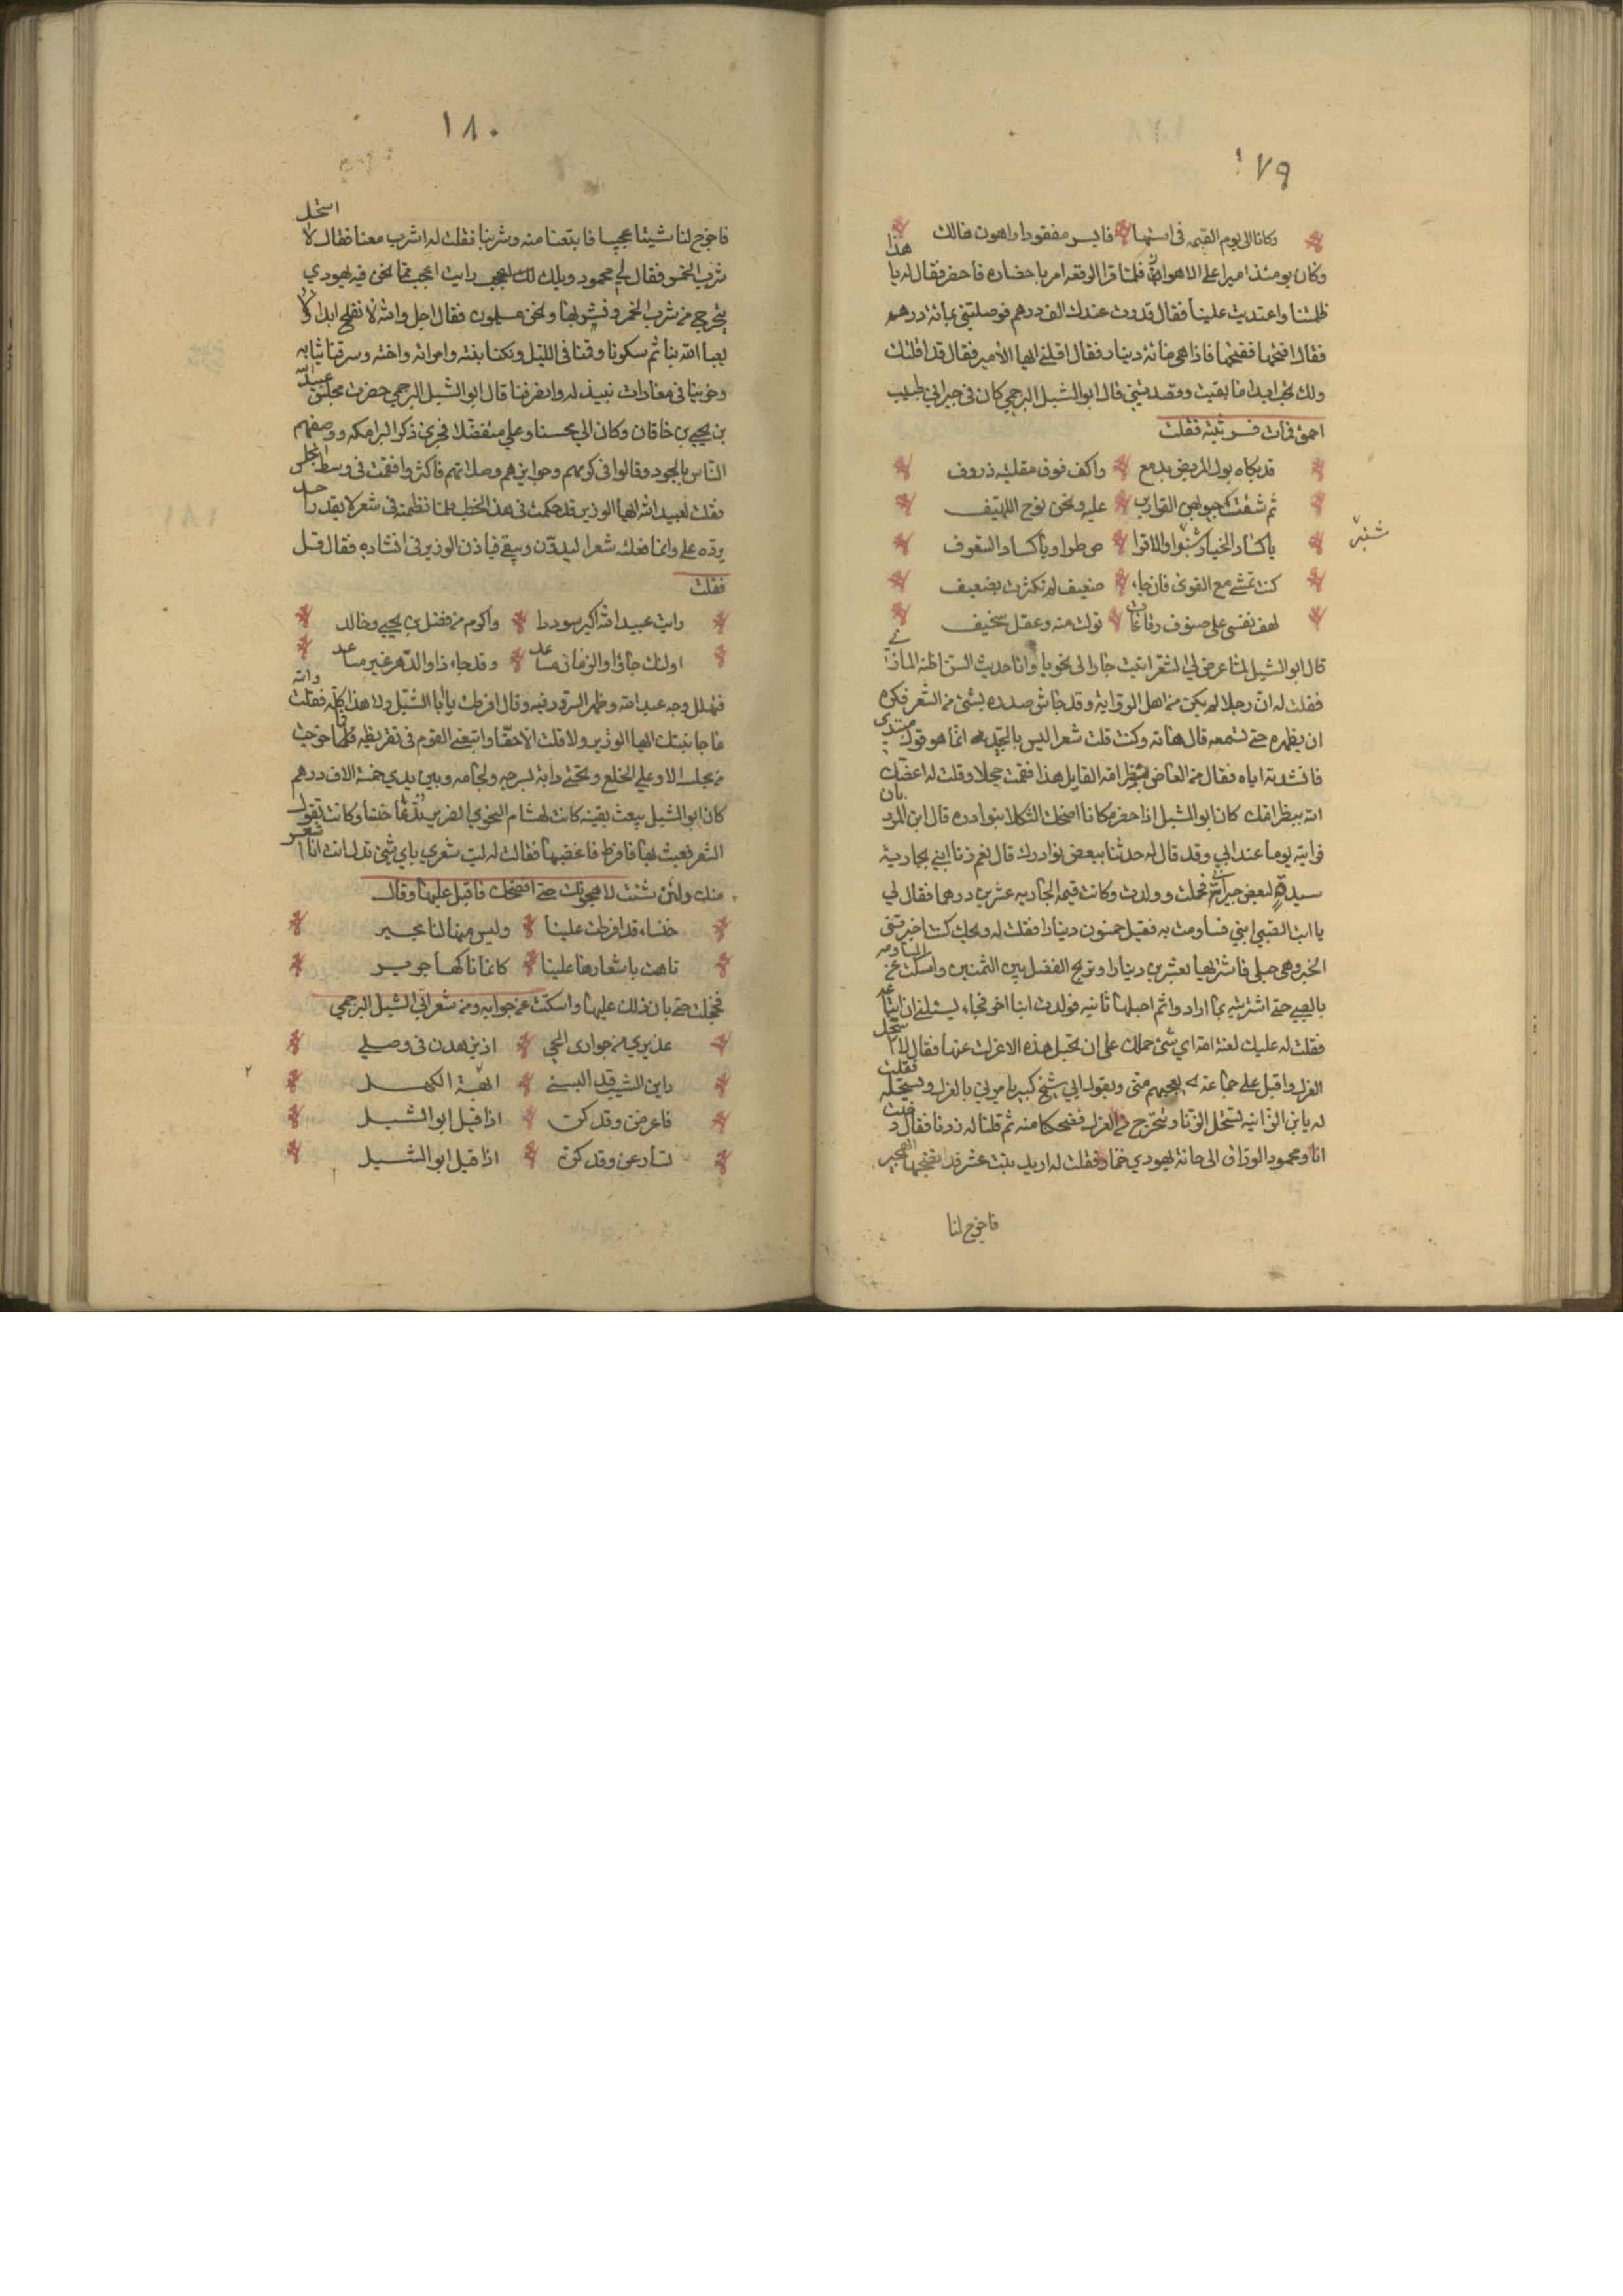 ١٧٩
وكانا الى يوم القيمه في استها فايسر مفقود واهون هالك
وكان يومئذ اميرا على الاهواز فلما قرا الوقعه امر باحضاره فاحضر فقال له يا هذا
ظلمتنا واعتديت علينا فقال قدرت عندك الف درهم فوصلتني بمائة درهم
فقال افتحها ففتحها فاذا هي مائة دينار فقال اقلني ايها الأمير فقال قد اقلتك
ولك ابدا ما بقيت وقصدتني قال ابو الشبل البرجمي كان في جيراني طبيب
احمق فمات فرثيته فقلت
قد بكاه بول المريض بدمع واكف فوق مقلتيه ذروف
ثم شقت جيوبهن القوارير عليه ونحن نوح اللهيف
ياكساد الخيار شنبر والاقرا ص طرا وياكساد السفوف
شنبر
كنت تمشي مع القوي فان جاء ضعيف لم تكترث بضعيف
لهف نفسي على صنوف رقاعات تولت منه وعقل سخيف
قال ابو الشبل لما عرض لي الشعر اتيت جارا لي نحويا وانا حديث السن اظنه المازني
فقلت له ان رجلا لم يكن من اهل الرواية وقد جاش صدره بشئ من الشعر فكره
ان يظهره حتى تسمعه قال هاته وكنت قلت شعرا ليس بالجيد انما هو قول مبتدي
فانشدته اياه فقال من العاض بظر امه القايل هذا فقمت خجلا وقلت له اعضك
الله ببظر امك كان ابو الشبل اذا حضر مكانا اضحك الثكلا بنوادره قال ابن المرزبان
فرايته يوما عند ابي وقد قال له حدثنا ببعض نوادرك قال نعم زنا ابني بجارية
سيدة لبعض جيراننا فحملت وولدت وكانت قيمة الجاريه عشرين درهما فقال لي
يا ابت الصبي ابني فساومت به فقيل خمسون دينارا فقلت له ويحك كنت اخبرتني
الخبر وهي حبلى فاشتريها بعشرين دينارا ونربح الفضل بين الثمنين وامسكت عن المساومه
بالصبي حتى اشتريته بما اراد واثم احبلها ثانيه فولدت ابنا اخر فجاء يسئلني ان ابتاعه
فقلت له عليك لعنة الله اي شئ حملك على ان تحبل هذه الا عزلت عنها فقال لا استحل
العزل واقبل على جماعة يعجبهم مني ويقول ابي شيخ كبير يامرني بالعزل ويستحله فقلت
له يا ابن الزانيه تستحل الزنا وتتحرج من العزل فضحكنا منه ثم قلنا له زدنا فقال دخلت
انا ومحمود الوراق الى حانة يهودي خمار فقلت له اريد بنت عشر قد انضجها الهجير
فاخرج لنا
١٨٠
فاخرج لنا شيئا عجيبا فابتعنا منه وشربنا فقلت له اشرب معنا فقال لا استحل
شرب الخمر فقال لي محمود ويلك رايت اعجب مما نحن فيه يهودي
يتحرج من شرب الخمر ونشربها ونحن مسلمون فقال اجل والله لا نفلح ابدا ولا
يعبا الله بنا ثم سكرنا وقمنا في الليل ونكنا بنته وامراته واخته وسرقنا ثيابه
وخرينا في نبيذ له وانصرفنا قال ابو الشبل البرجمي حضرت مجلس عبيد الله
بن يحيى بن خاقان وكان الي محسنا وعلي متفضلا فجرى ذكر البرامكه ووصفهم
الناس بالجود وقالوا في كرمهم وجوايزهم وصلاتهم فاكثروا فقمت في وسط المجلس
فقلت لعبيد الله ايها الوزير قد حكمت في هذا الخطب نظمته في شعر لا يقدر احد
يرده علي وانما فعلته شعرا ليدون ويبقى فياذن الوزير في انشاده فقال قل
فقلت
رايت عبيد الله اكبر سوددا واكرم من فضل بن يحيى وخالد
اولئك جادوا والزمان مساعد وقد جاد ذا والدهر غير مساعد
فتهلل وجه عبيد الله وظهر السرور فيه وقال افرطت يا ابا الشبل ولا هذا كله فقلت والله
ما حابيتك ايها الوزير ولا قلت الا حقا واتبعني القوم في تقريظه فما خرجت
من مجلسه الا وعلي الخلع وتحتي دابة بسرجه ولجامه وبين يدي خمسة الاف درهم
كان ابو الشبل يعبث بقينه كانت لهشام النحوي الضرير خنسا وكانت تقول
الشعر فعبث بها فافرط فاغضبها فقالت له ليت شعري باي شئ تدل انت انا اشعر
منك ولئن شئت لاهجونك حتى افضحك فاقبل عليها وقال
خنساء قد افرطت علينا وليس منها لنا مجير
تاهت باشعارها علينا كانما ناكها جرير
فخجلت حتى بان ذلك عليها وامسكت عن جوابه ومن شعر ابي الشبل البرجمي
عذيري من جواري الحي اذ يزهدن في وصلي
راين الشيب قد البسني ابهة الكهل
فاعرضن وقد كن اذا قيل ابو الشبل
تساعين وقد كن اذا قيل ابو الشبل